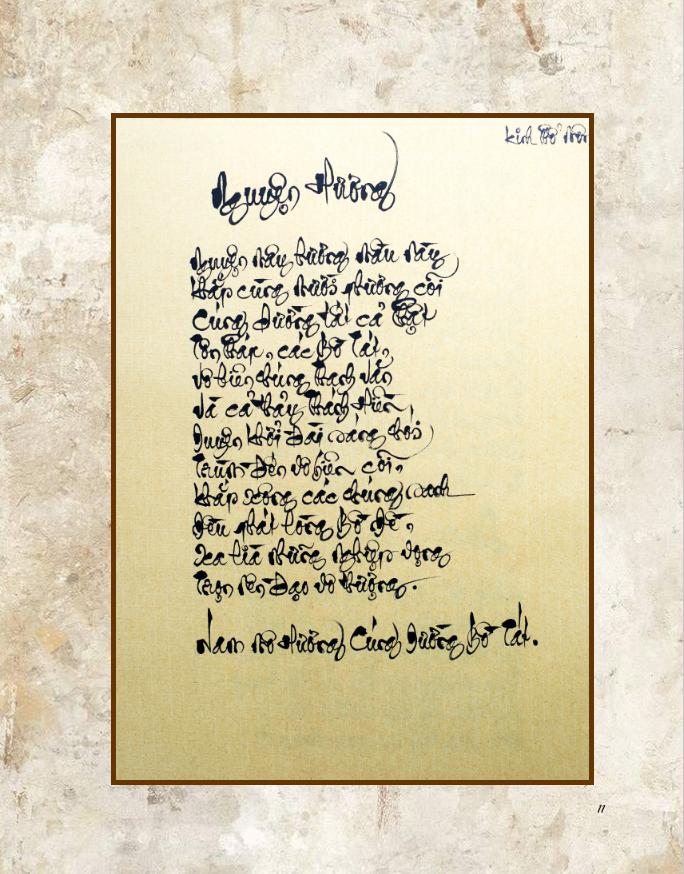 Kinh Phổ Môn
Nguyện Hương
Nguyện mây hương mầu này
Khắp cùng mười phương cõi
Cúng dường tất cả Phật
Tôn Pháp, các Bồ Tát,
Vô biên chúng Thanh Văn
Và cả thảy Thánh Hiền,
Duyên khởi đài sáng chói
Trùm đến vô biên cõi,
Khắp xông các chúng sanh
Đều phát lòng Bồ Đề,
Xa lìa những nghiệp vọng
Trọn nên đạo vô thượng.
Nam mô Hương Cúng Dường Bồ Tát.
11